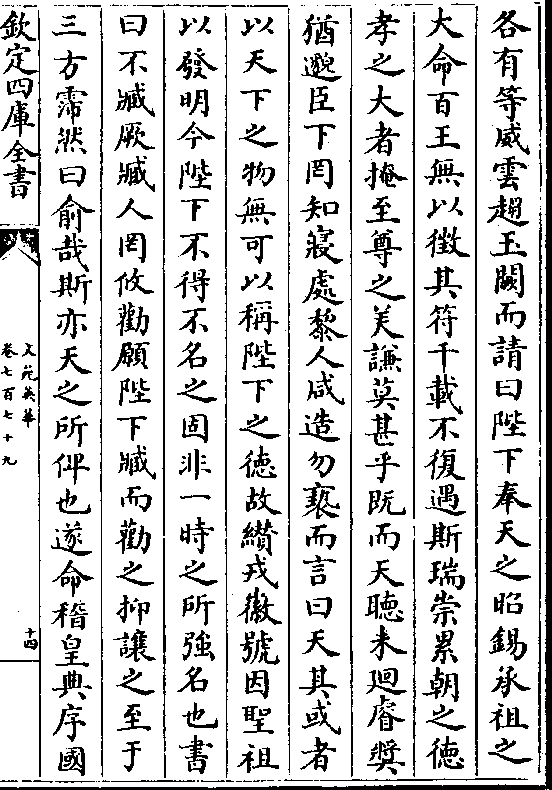 各有等威雲趨玉闕而請曰陛下奉天之昭錫承祖之
大命百王無以徵其符千載不復遇斯瑞崇累朝之德
孝之大者掩至尊之美謙莫甚乎既而天聽未迴睿奬
猶邈臣下罔知寢處黎人咸造勿褻而言曰天其或者
以天下之物無可以稱陛下之德故纉戎徽號因聖祖
以發明今陛下不得不名之固非一時之所強名也書
曰不臧厥臧人罔攸勸願陛下臧而勸之抑讓之至于
三方霈然曰俞哉斯亦天之所俾也遂命稽皇典序國
欽定四庫全書
文苑英華
卷七百七十九
十四